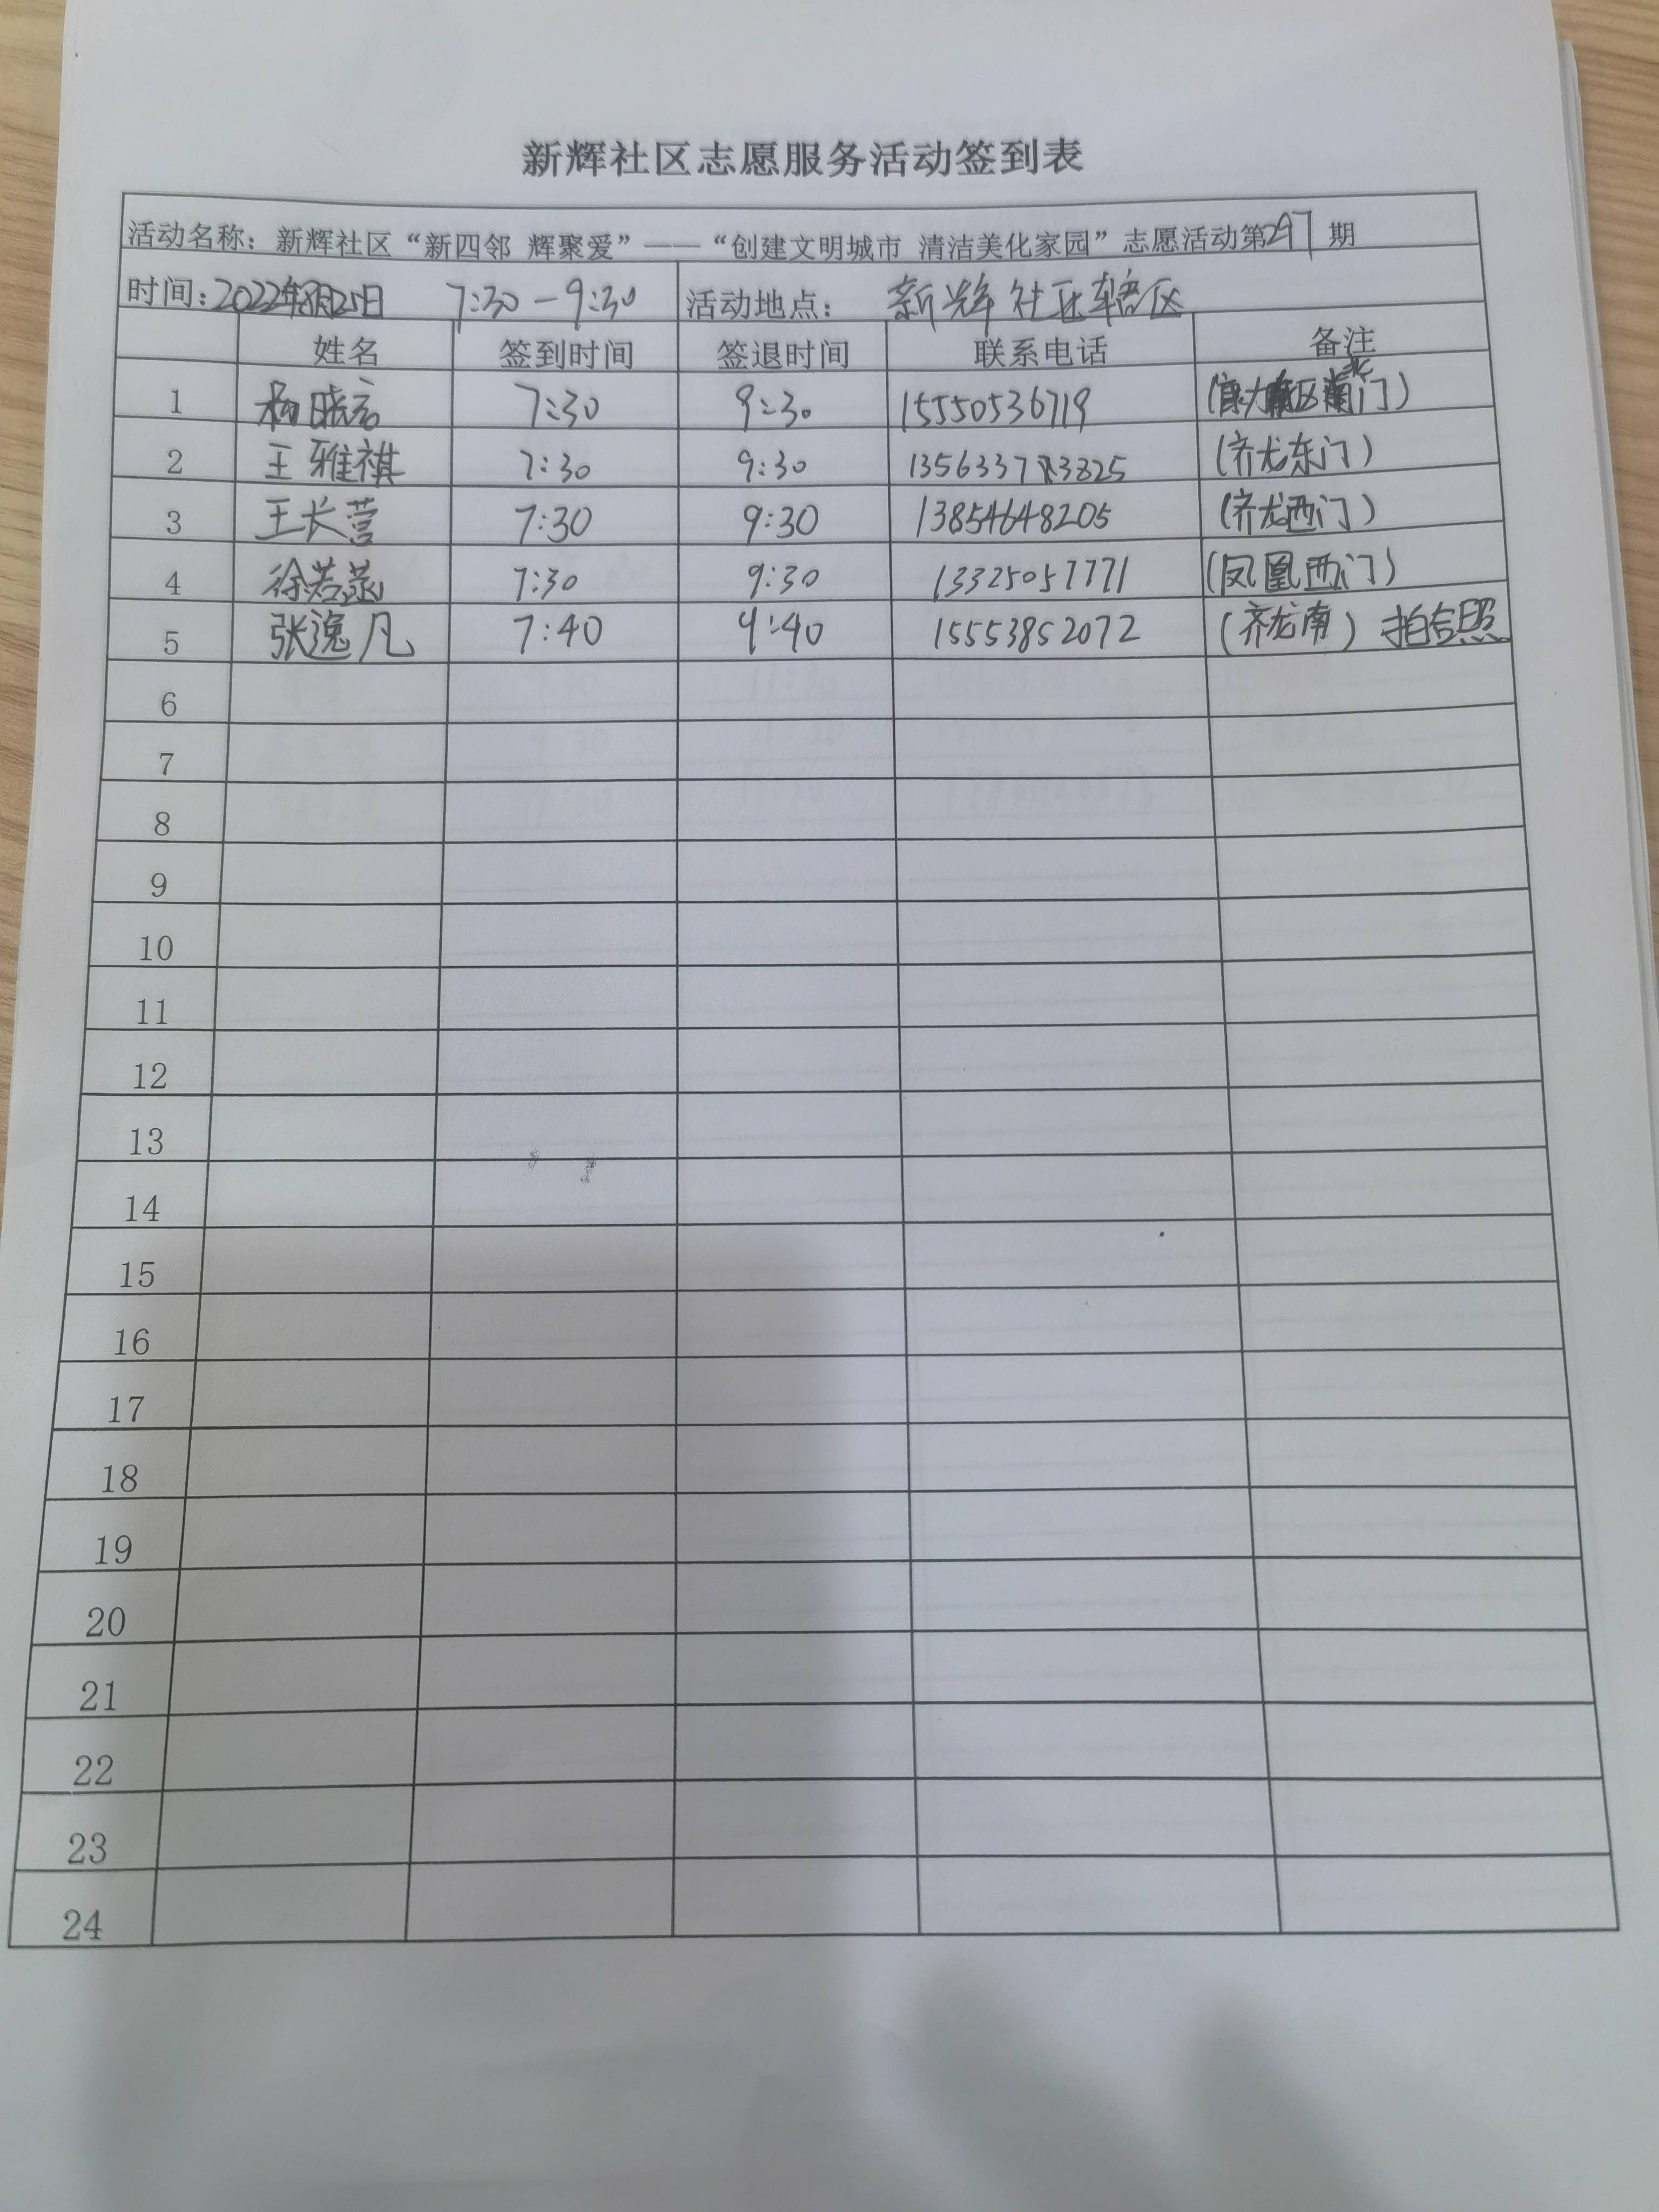 新辉社区志愿服务活动签到表
活动名称：新辉社区“新四邻 辉聚爱”——“创建文明城市 清洁美化家园”志愿活动第297期
时间：2022年8月25日 7:30-9:30 活动地点：新辉社区辖区
姓名 签到时间 签退时间 联系电话 备注
1 杨晓 7:30 9:30 15550536719
2 王雅祺 7:30 9:30 135633783825 (齐龙东门)
3 王长营 7:30 9:30 13854648205 (齐龙西门)
4 徐若 7:30 9:30 13325057771 (凤凰西门)
5 张逸凡 7:40 9:40 15553852072 (齐龙南) 拍合照
6
7
8
9
10
11
12
13
14
15
16
17
18
19
20
21
22
23
24